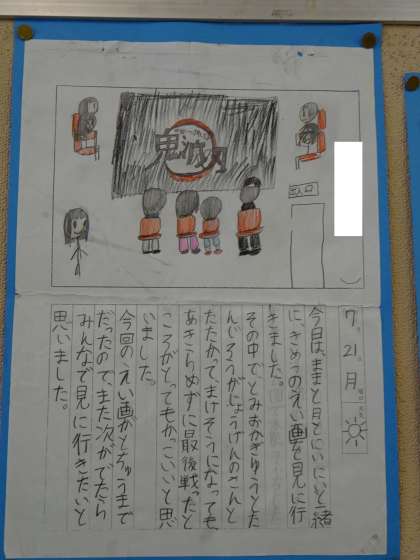 鬼滅刃
出入口
7月21日 月曜日
今日は、ままと月とにいにいと一緒
に、きめつのえい画を見に行
きました。
その中で、とみおかぎゆうとた
んじろうがじょうげんのさんと
たたかて、まけそうになっても
あきらめずに最後戦ったと
ころがとってもかっこいいと思
いました。
今回のえい画がとちゅうまで
だったので、また次がでたら
みんなで見に行きたいと
思いました。